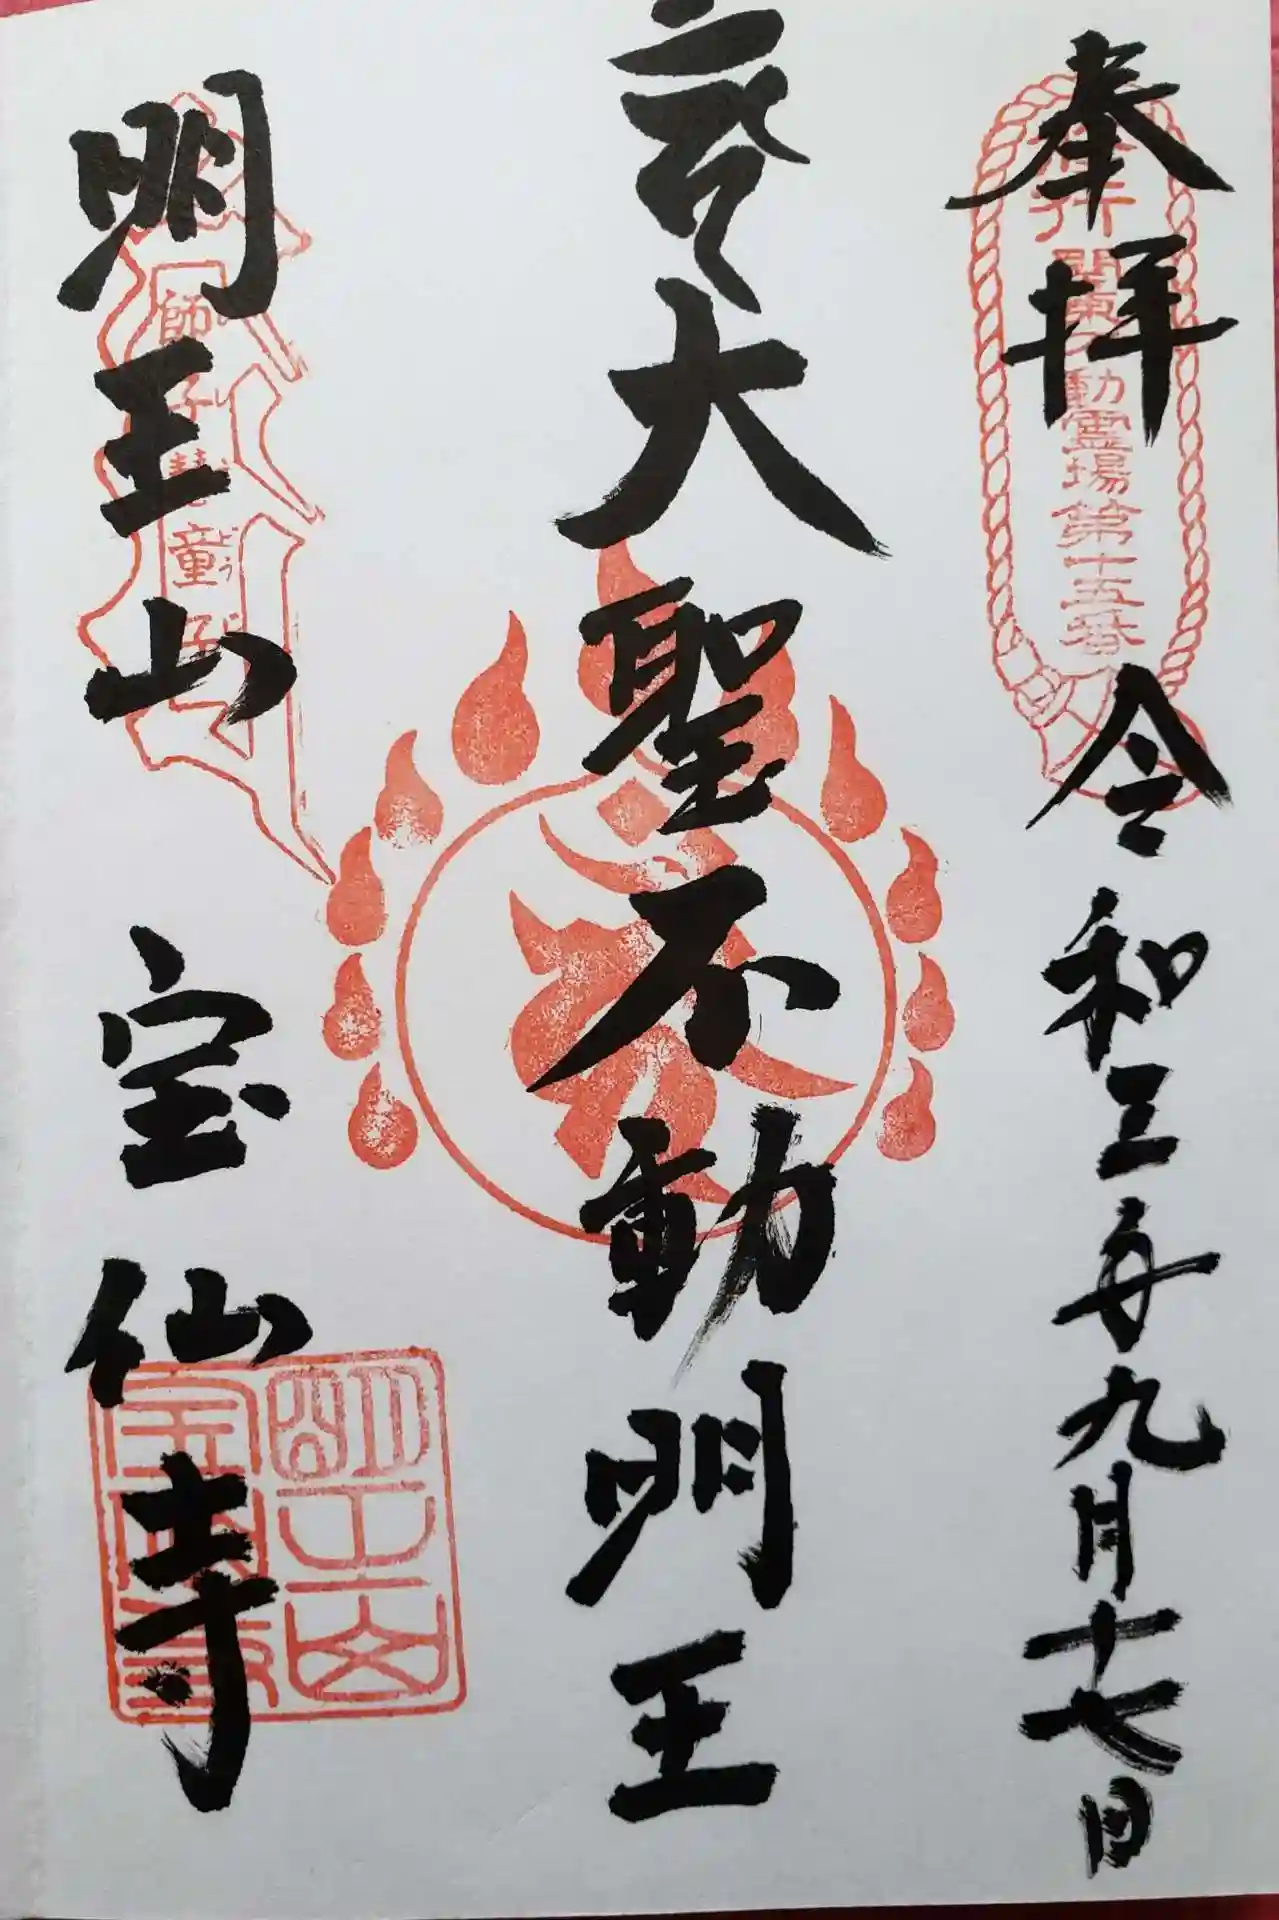 奉拝
令和三年九月十七日
関東不動霊場第十五番
大聖不動明王
明王山 宝仙寺
師子慧童子
明王山
宝仙寺